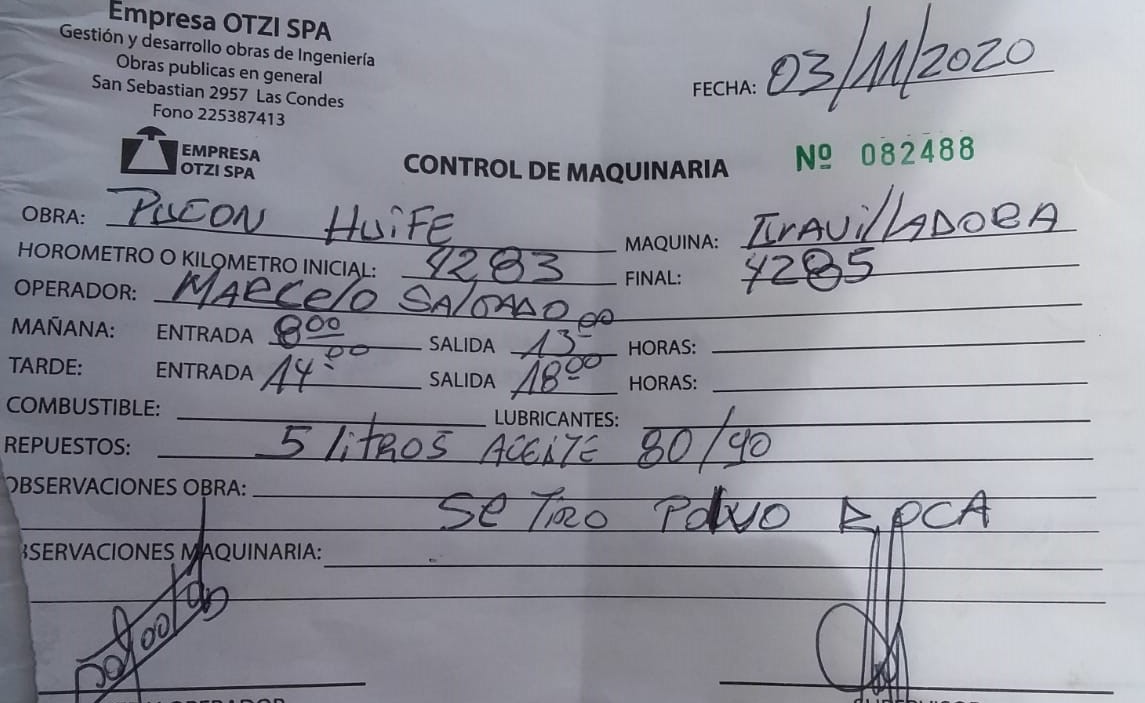 Empresa OTZI SPA
Gestión y desarrollo obras de Ingeniería
Obras publicas en general
San Sebastian 2957 Las Condes
Fono 225387413
FECHA: 03/11/2020
EMPRESA
OTZI SPA
CONTROL DE MAQUINARIA Nº 082488
OBRA: PUCON HUiFE MAQUINA:
HOROMETRO O KILOMETRO INICIAL: 4283 FINAL: 4285
OPERADOR: MARCelo SAlGADO
MAÑANA: ENTRADA 8:00 SALIDA 13:00 HORAS:
TARDE: ENTRADA 14:00 SALIDA 18:00 HORAS:
COMBUSTIBLE: LUBRICANTES:
REPUESTOS: 5 litROS ACEITE 80/90
OBSERVACIONES OBRA:
Se TiRO POlVO ROCA
OBSERVACIONES MAQUINARIA: